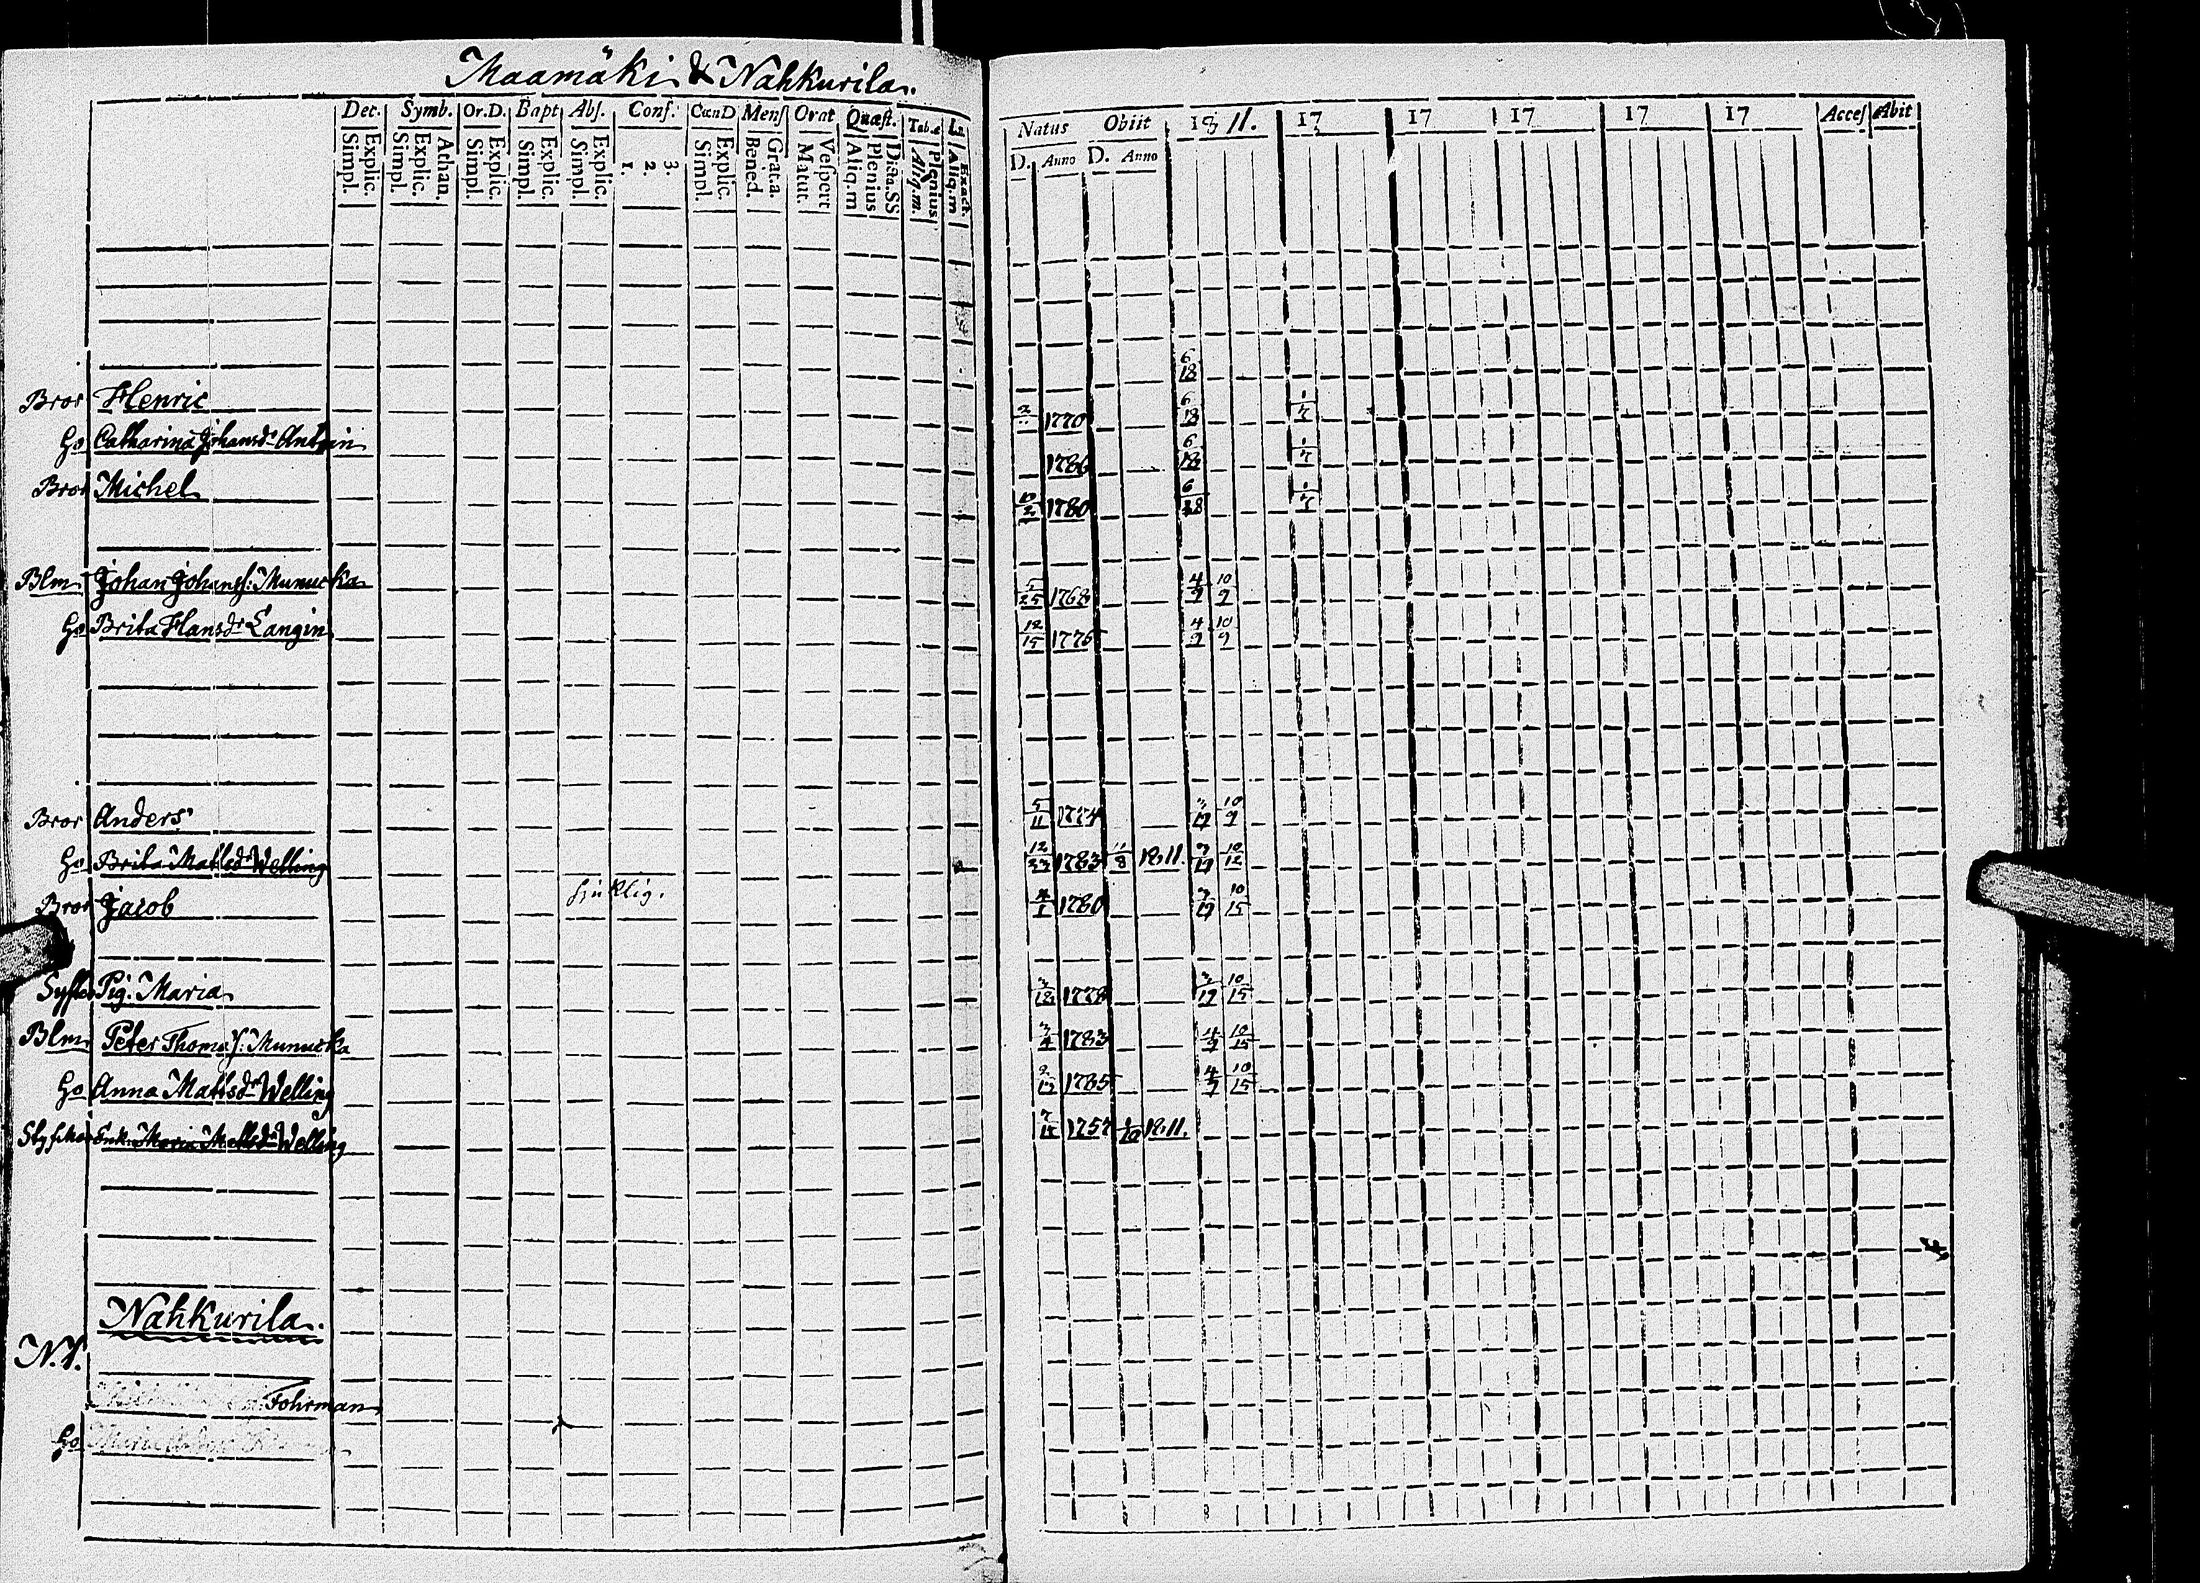 Maamäki & Nahkurila.
Dec. Symb. Or.D. Bapt Abs. Conf. CœnD Mens Orat Quæst. Tab.æ
Explic. Simpl. Athan. Explic. Simpl. Explic. Simpl. Explic. Simpl. Explic. Simpl. 1. 2. 3. Explic. Simpl. Grat.a. Bened. Vespert Matut. Dicta.SS Plenius Aliq.m Plenius Aliq.m. Exact. Aliq.m
Natus Obiit 1811. 17 17 17 17 17 Acces Abit
D. Anno D. Anno
6/18
Bror Henric 1770 6/18 1/7
Ho Catharina Johansdr 1786 6/18 1/7
Bror Michel 1780 6/18 1/7
Blm Johan Johans: Munucka 5/25 1768 4/9 10/9
Ho Brita Hansdr Langin 12/15 1776 4/9 10/9
Bror Anders 5/11 1774 3/19 10/9
Ho Brita Mattsdr Welling 12/23 1783 11/8 1811. 3/19 10/12
Bror Jacob sjuklig. 4/1 1780 3/19 10/15
Syster Pig. Maria 3/18 1778 3/19 10/15
Blm Peter Thomas: Munucka 3/4 1783 4/9 10/15
Ho Anna Mattsdr Welling 1785 4/9 10/15
Enk. Maria Mattsdr Welling 1757 1/10 1811.
Nahkurila.
N.1.
Fohrman
Ho Maria